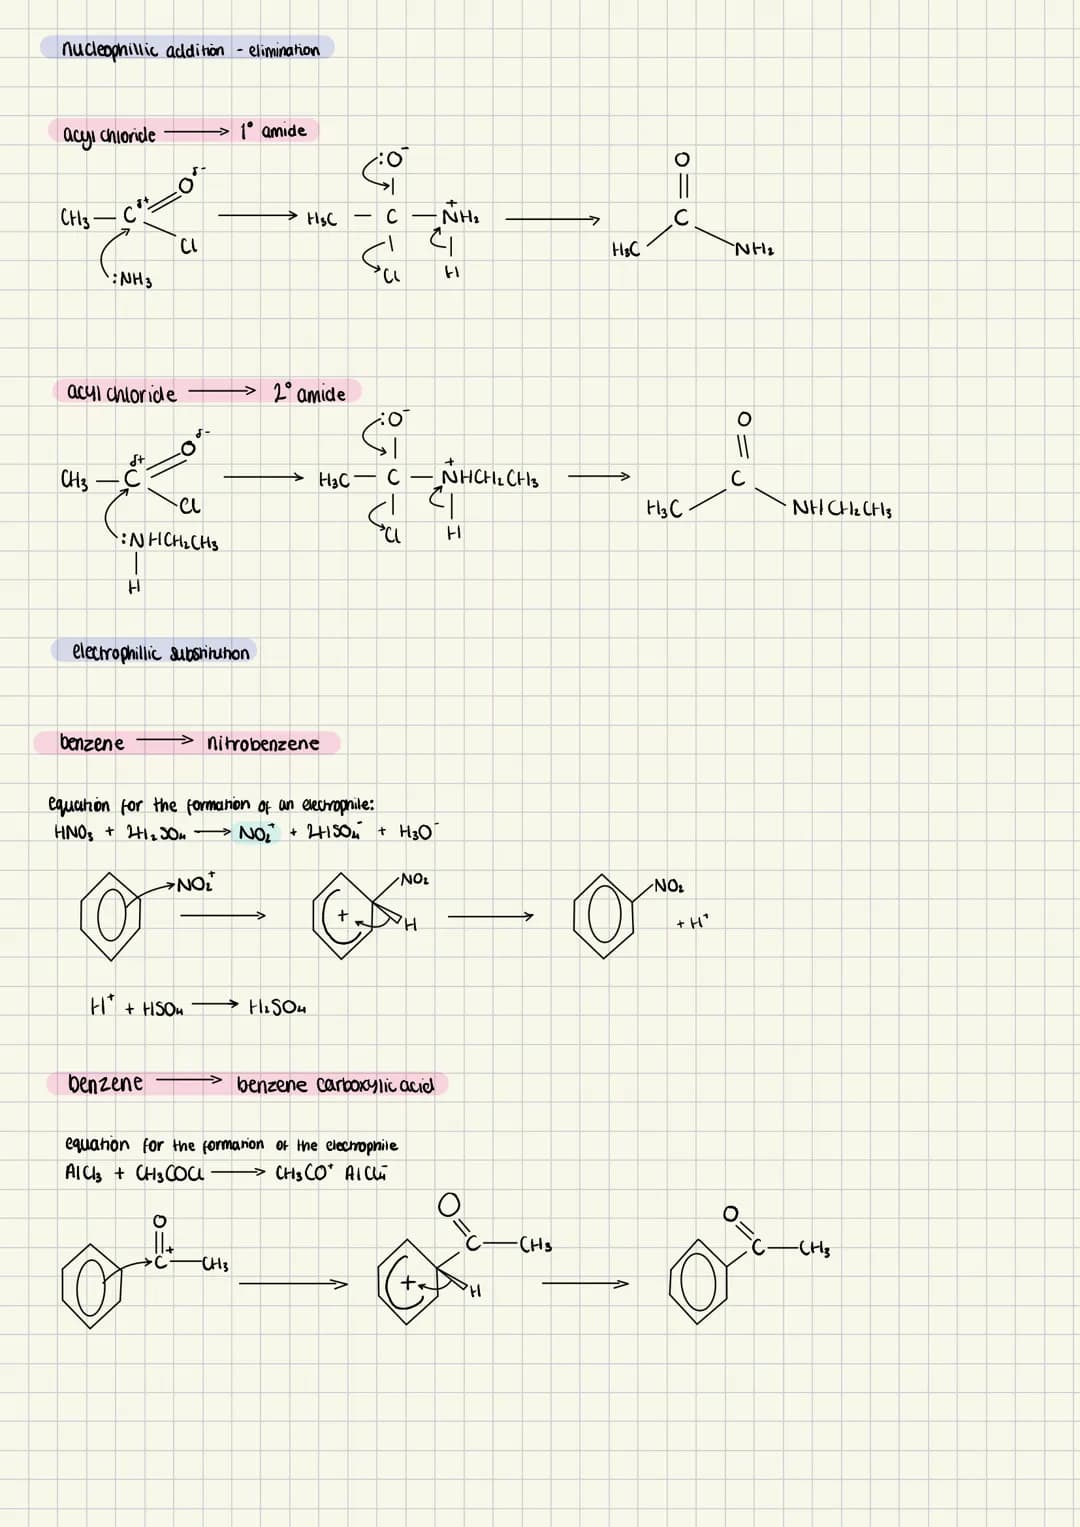 nucleophillic addition - elimination
acyl chloride → 1° amide
CH₃ — C δ+ O δ- Cl :NH₃ → H₃C — C — N⁺H₂ :O⁻ Cl H → O C H₃C NH₂
acyl chloride → 2° amide
CH₃ — C δ+ O δ- Cl :NHCH₂CH₃ H → H₃C — C — N⁺HCH₂CH₃ :O⁻ Cl H → O C H₃C NHCH₂CH₃
electrophillic substitution
benzene → nitrobenzene
equation for the formation of an electrophile:
HNO₃ + 2H₂SO₄ → NO₂⁺ + 2HSO₄⁻ + H₃O⁻
NO₂⁺ → + NO₂ H → NO₂ + H⁺
H⁺ + HSO₄ → H₂SO₄
benzene → benzene carboxylic acid
equation for the formation of the electrophile
AlCl₃ + CH₃COCl → CH₃CO⁺ AlCl₄⁻
O C⁺ — CH₃ → + O C — CH₃ H → O C — CH₃